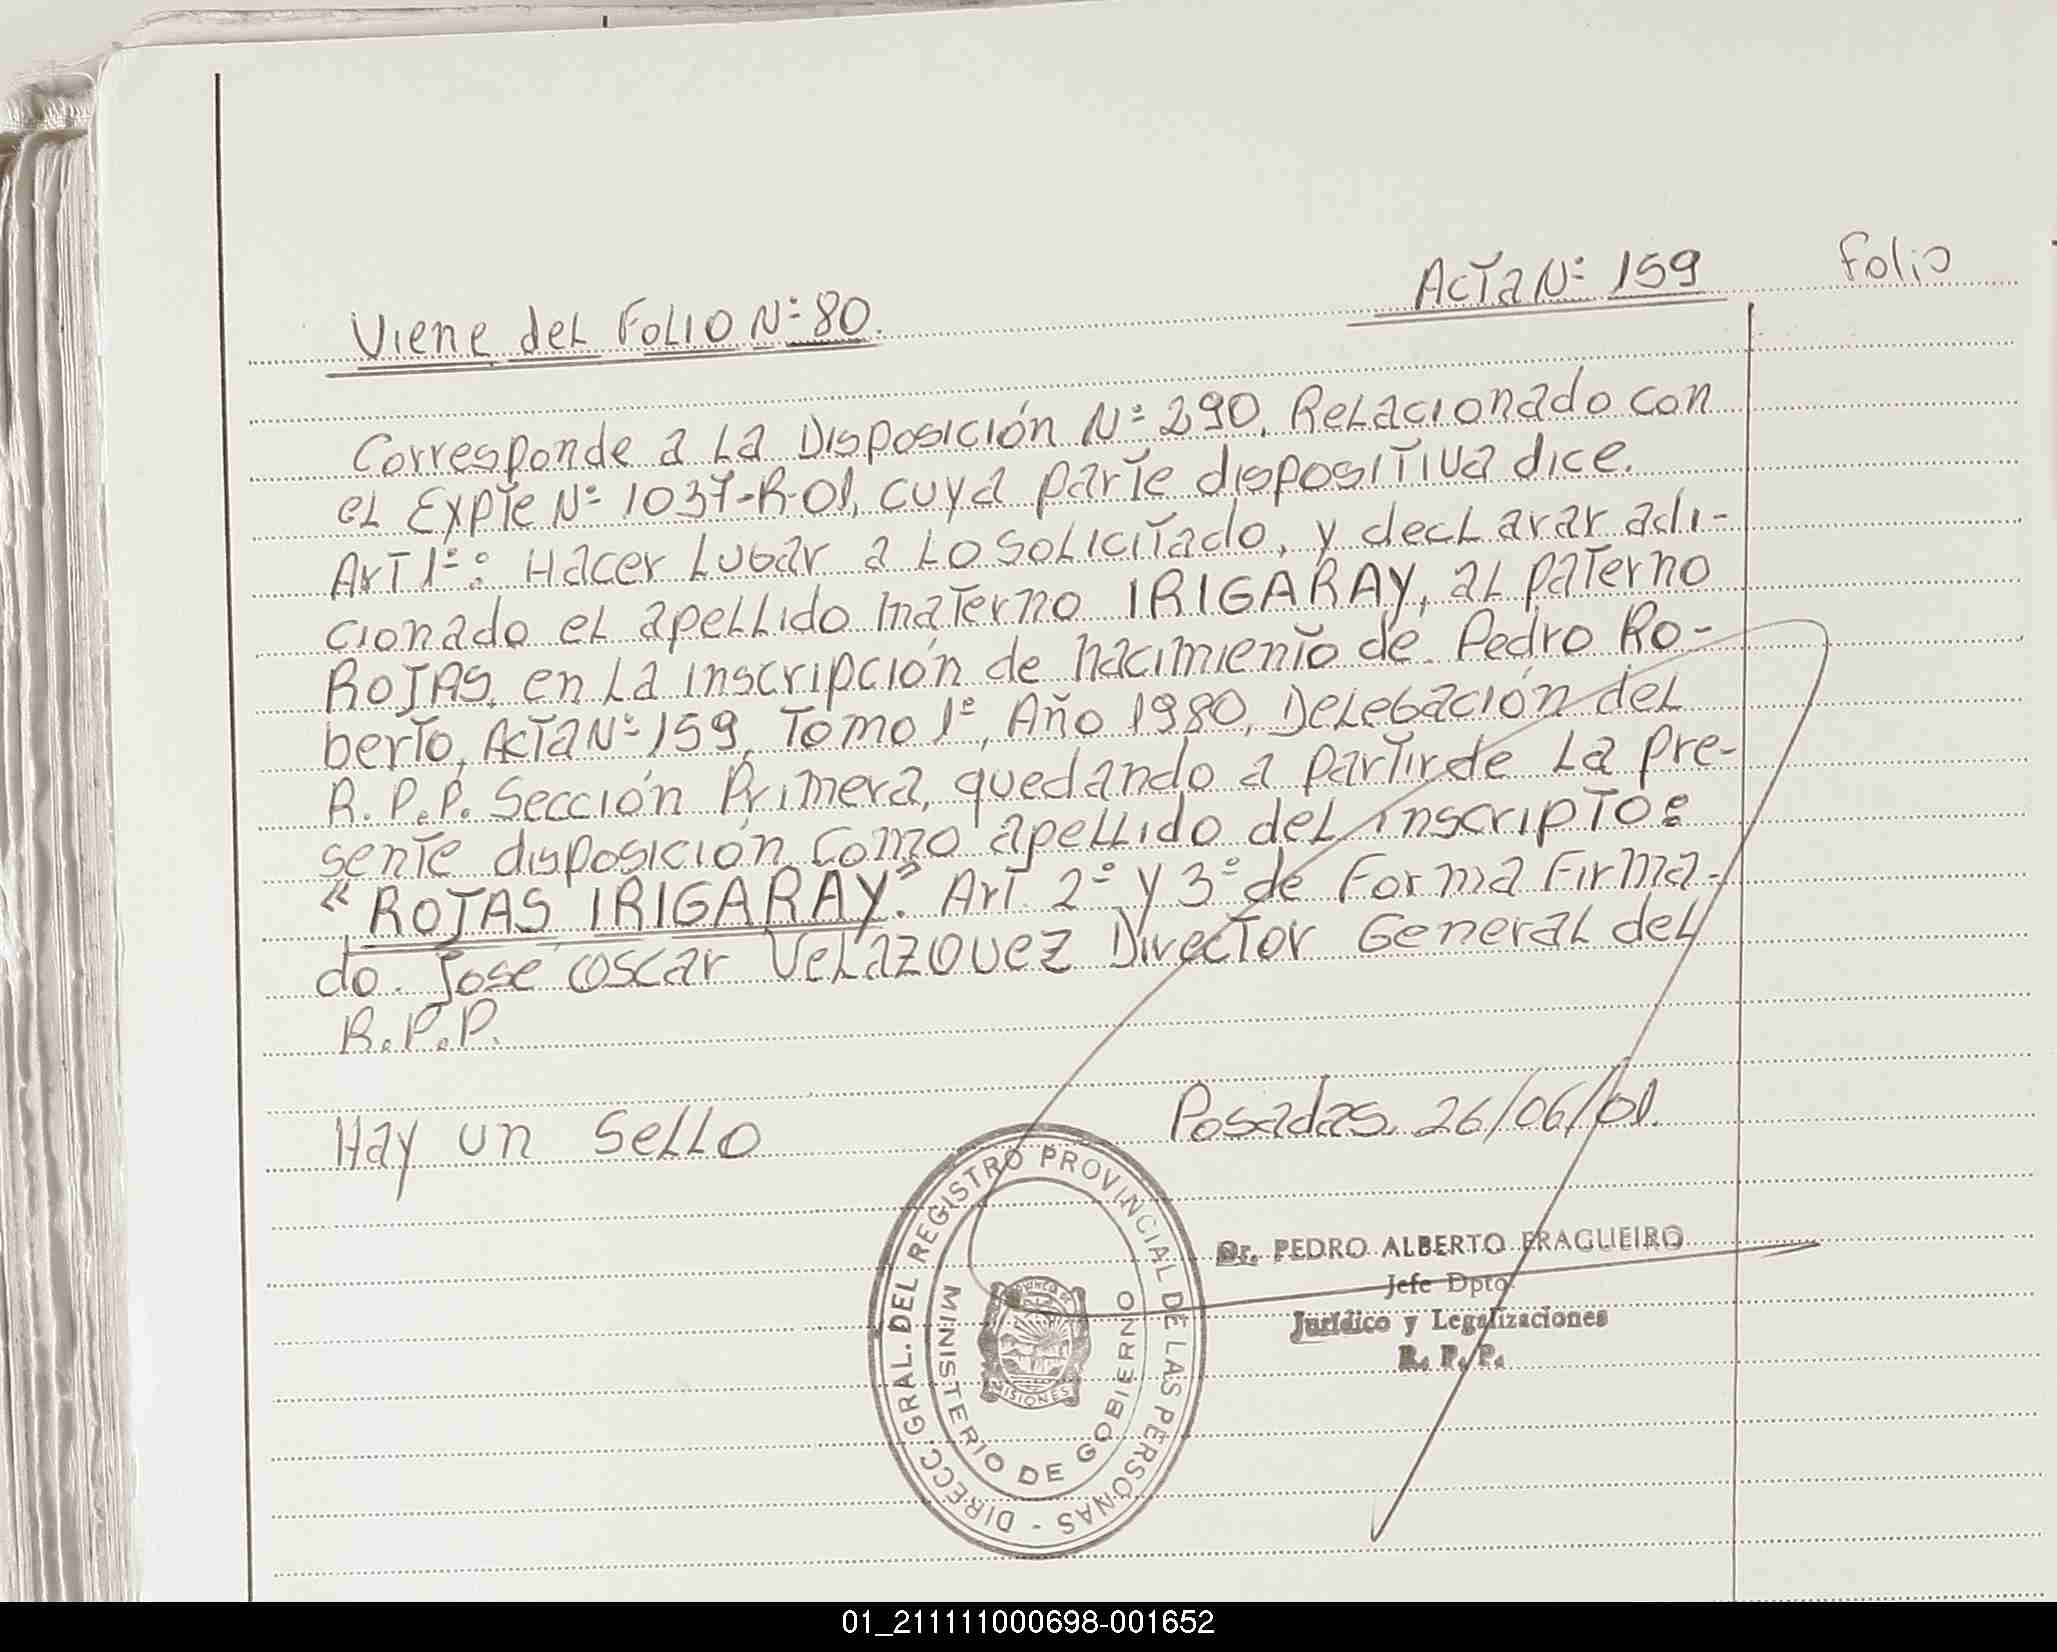 Acta Nº 159 Folio
Viene del Folio Nº 80.
Corresponde a la Disposición Nº 290. Relacionado con
el Expte Nº 1037-R-01, cuya parte dispositiva dice.
Art 1º: Hacer Lugar a Lo solicitado, y declarar adi-
cionado el apellido materno IRIGARAY, al paterno
ROJAS, en la inscripción de nacimiento de Pedro Ro-
berto, Acta Nº 159, Tomo 1º, Año 1980, Delegación del
R.P.P. Sección Primera, quedando a partir de la pre-
sente disposición como apellido del inscripto:
"ROJAS IRIGARAY". Art. 2º y 3º de Forma Firma-
do. Jose Oscar Velazquez Director General del
R.P.P.
Hay un Sello Posadas, 26/06/01.
DIRECC. GRAL. DEL REGISTRO PROVINCIAL DE LAS PERSONAS -
MINISTERIO DE GOBIERNO
MISIONES
Dr. PEDRO ALBERTO FRAGUEIRO
Jefe Dpto.
Jurídico y Legalizaciones
R. P. P.
01_211111000698-001652